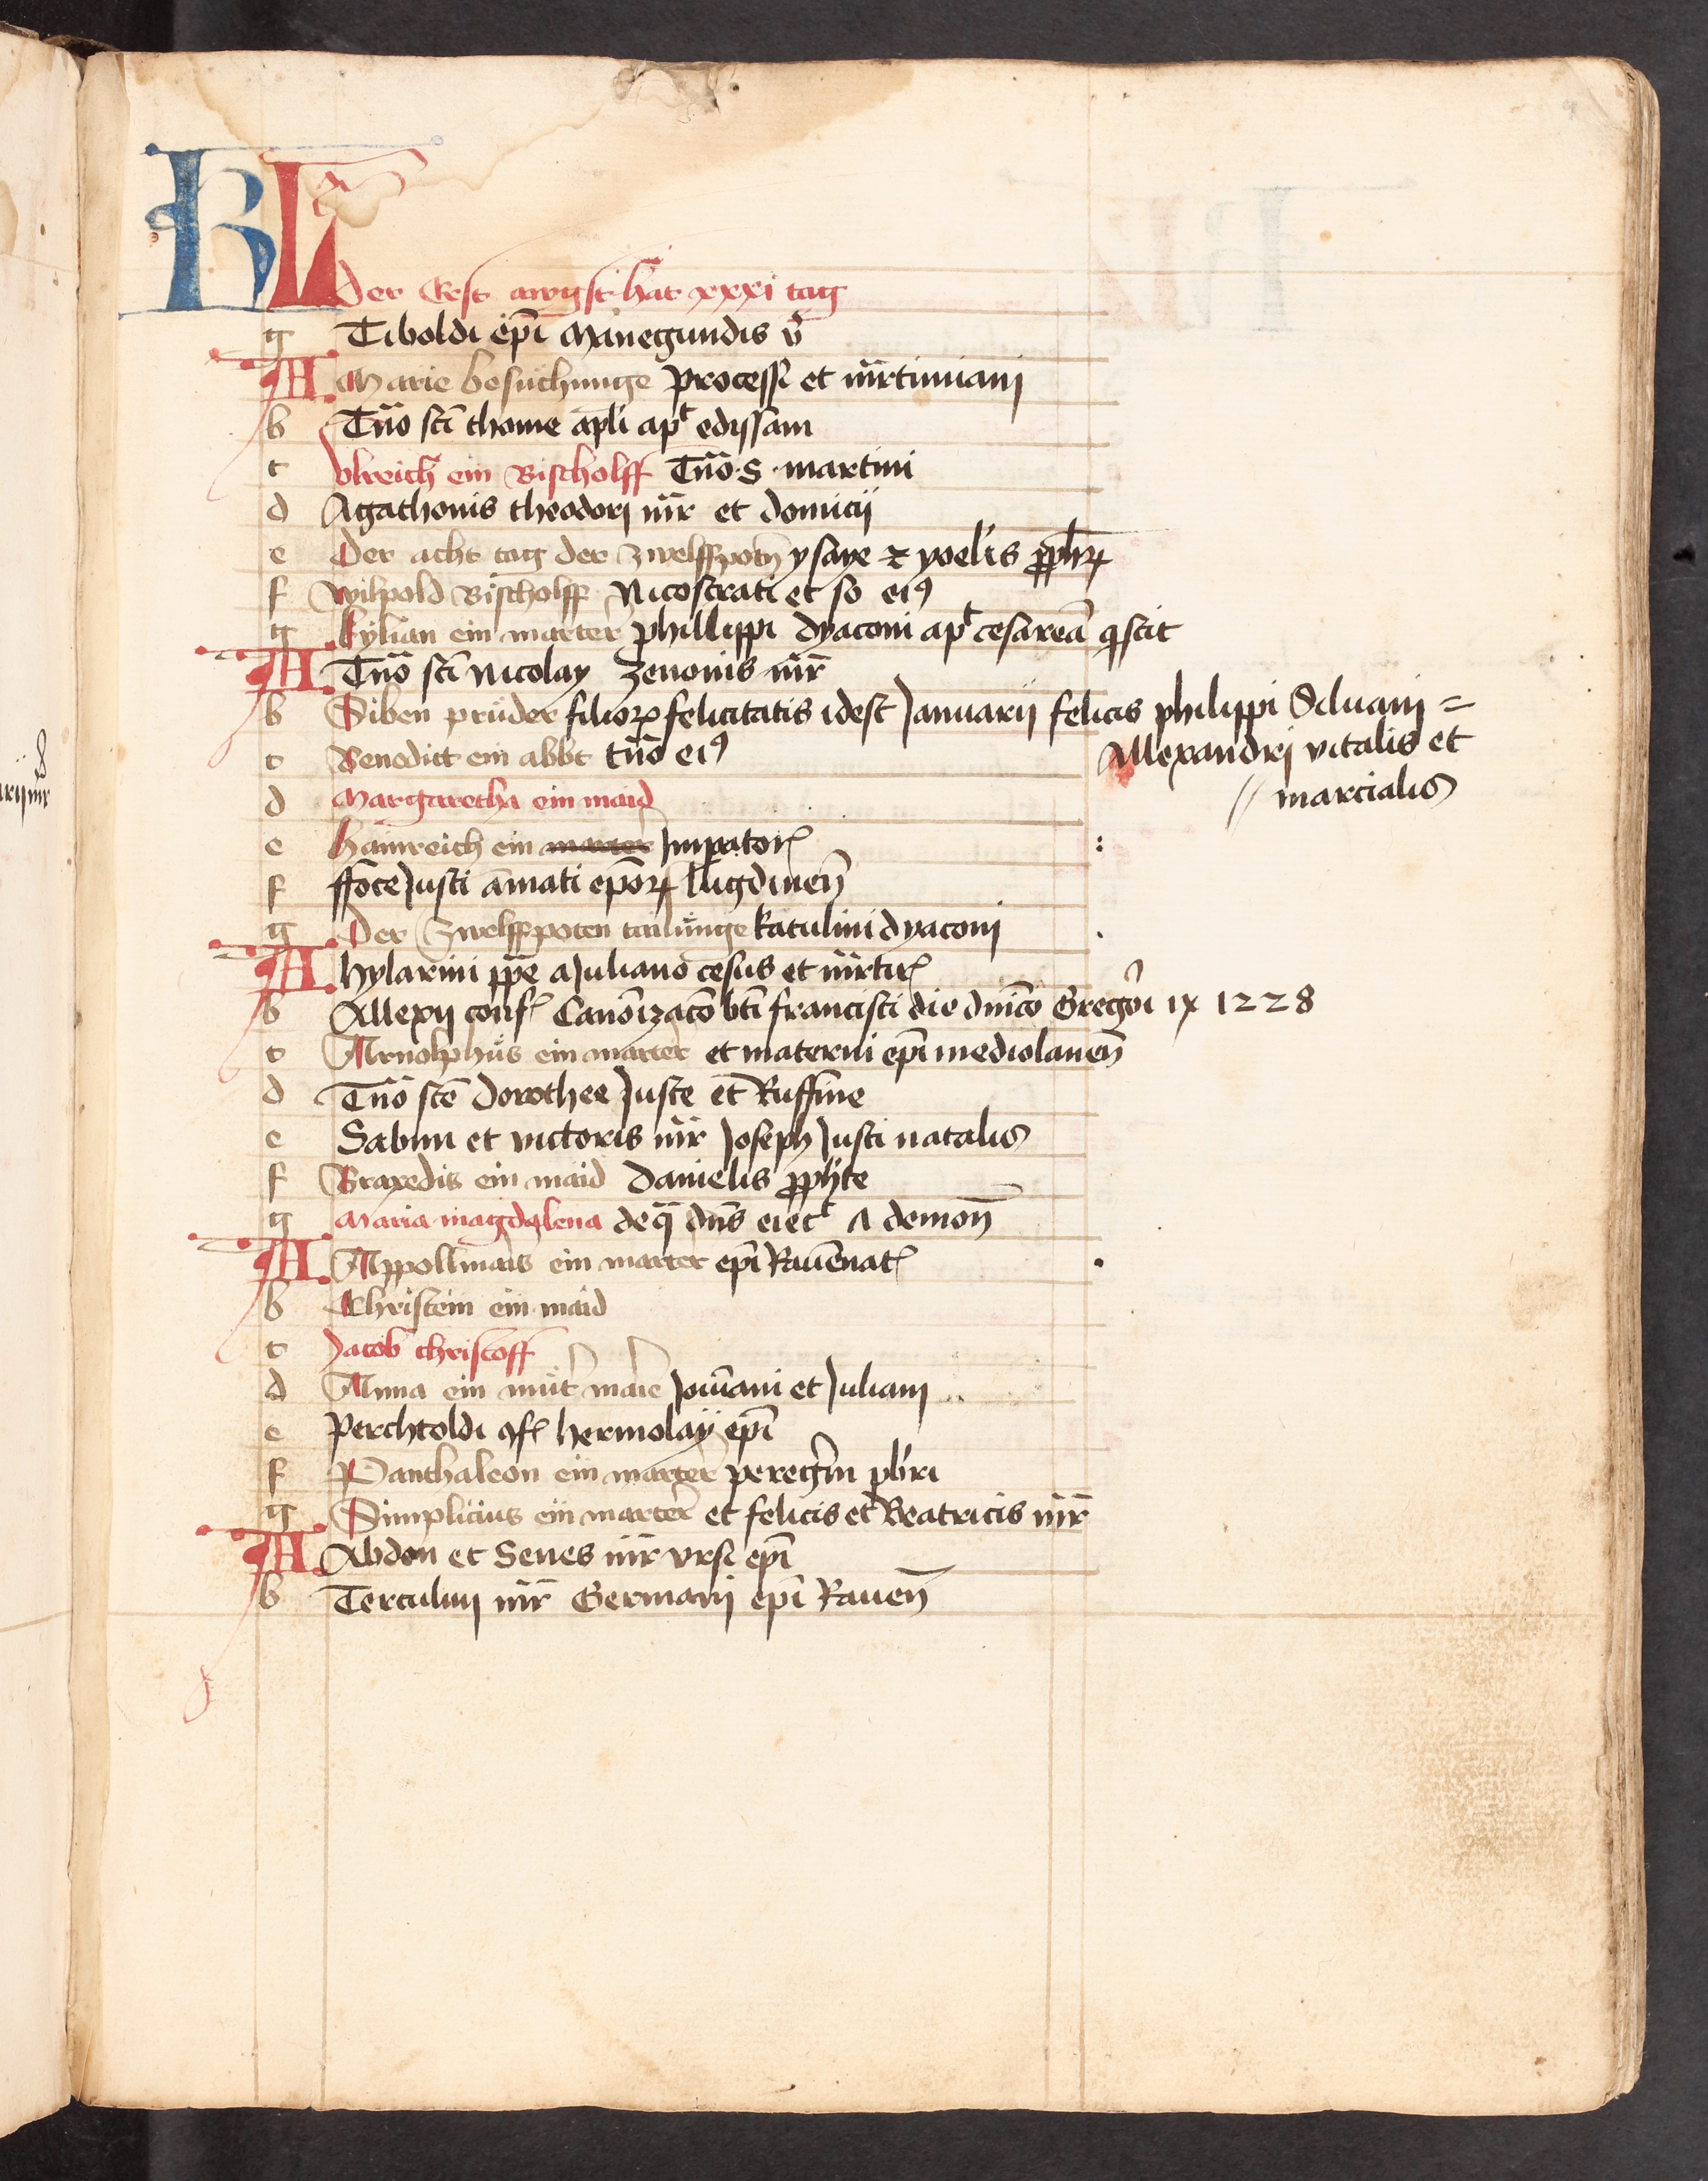 KL
Der Erst awgst hat xxxi tag
g Tiboldi ep̄i Manegundis v̄
A Marie besuchunge Processi et mr̄tiniani
b Tn̄o sc̄i thome ap̄li apᵗ edissam
c Vlreich ein Bischolff Tn̄o S martini
d Agathonis theodori mr̄ et domicii
e Der acht tag der zwelffpotn̄ ysaye ⁊ yoelis ꝓph̄ꝝ
f Wilpold Bischolff Nicostrati et so eiꝰ
g Kylian ein marter phillippi dyaconi apᵗ cesareā
A Tn̄o sc̄i Nicolay Zenonis mr̄
b Siben prüder filioꝝ felicitatis idest Januarii felicis philippi Siluani =
Allexandri vitalis et
// marcialis
c Benedict ein abbt tn̄o eiꝰ
d Margaretha ein maid
e Hainreich ein marter Impatoꝝ
f ffoce Justi amati epōꝝ lugdunen̄
g Der Zwelffpoten tailunge Katulini dyaconi
A hylarini a Juliano cesus et mr̄tiꝝ
b Allexii conf Canōizac̄o bt̄i francisci die dn̄ico Gregōi ix 1228
c Arnolphus ein marter et materni ep̄i mediolanen̄
d Tn̄o sc̄e Dorothee Juste et Ruffine
e Sabini et victoris mr̄ Joseph Justi natalis
f Braxedis ein maid Danielis ꝓph̄te
g Maria magdalena de q̄ dn̄s eiecᵗ a demon̄
A Appollinaris ein marter ep̄i Rauēnat
b Christein ein maid
c Jacob christoff
d Anna ein mut̄ marie Jouiani et Juliani
e Perchtoldi ꝯf hermolay ep̄i
f Panthaleon ein marter peregrini pb̄ri
g Simplicius ein marter et felicis et Beatricis mr̄
A Abdon et Senes mr̄ vrsi ep̄i
b Terculini mr̄ Germani ep̄i Rauen̄